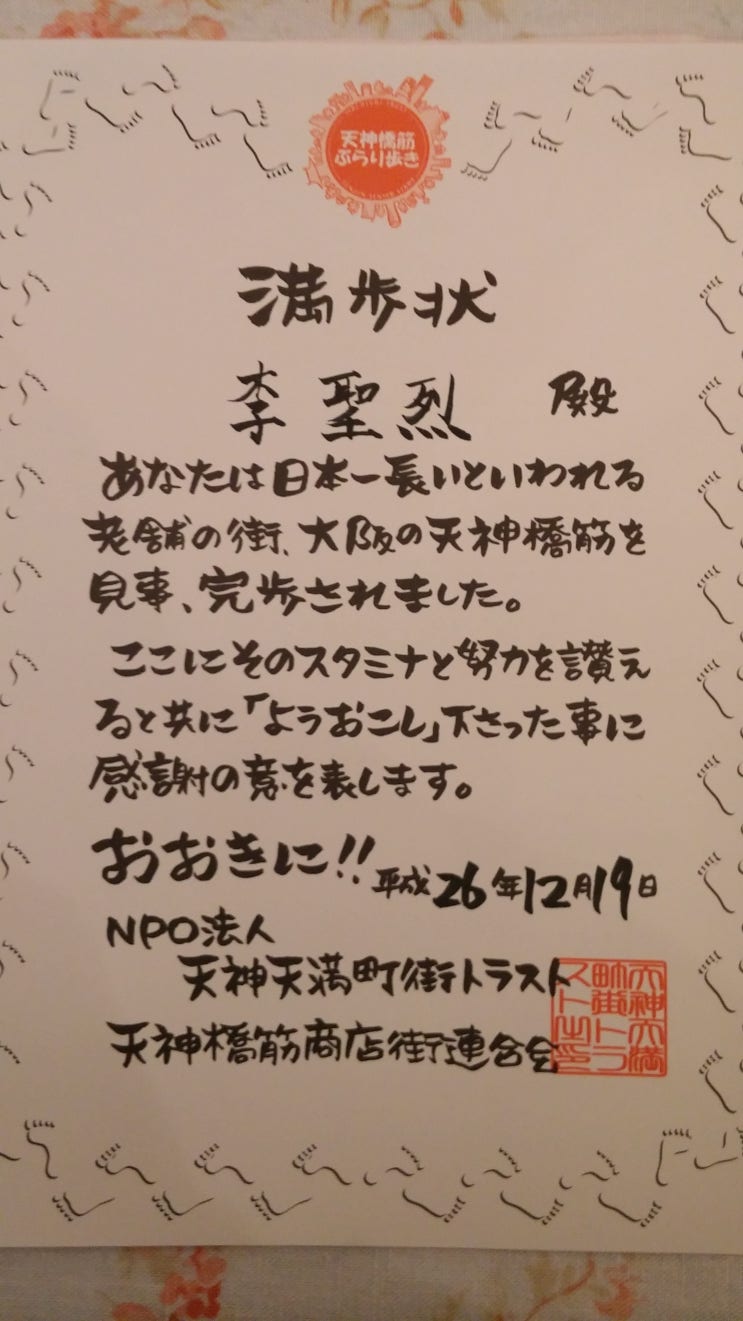 天神橋筋
ぶらり歩き
満歩状
李聖烈 殿
あなたは日本一長いといわれる
老舗の街、大阪の天神橋筋を
見事、完歩されました。
ここにそのスタミナと努力を讃え
ると共に「ようおこし」下さった事に
感謝の意を表します。
おおきに!!
平成26年12月19日
NPO法人
天神天満町街トラスト
天神橋筋商店街連合会
天神天満
町街トラ
スト之印